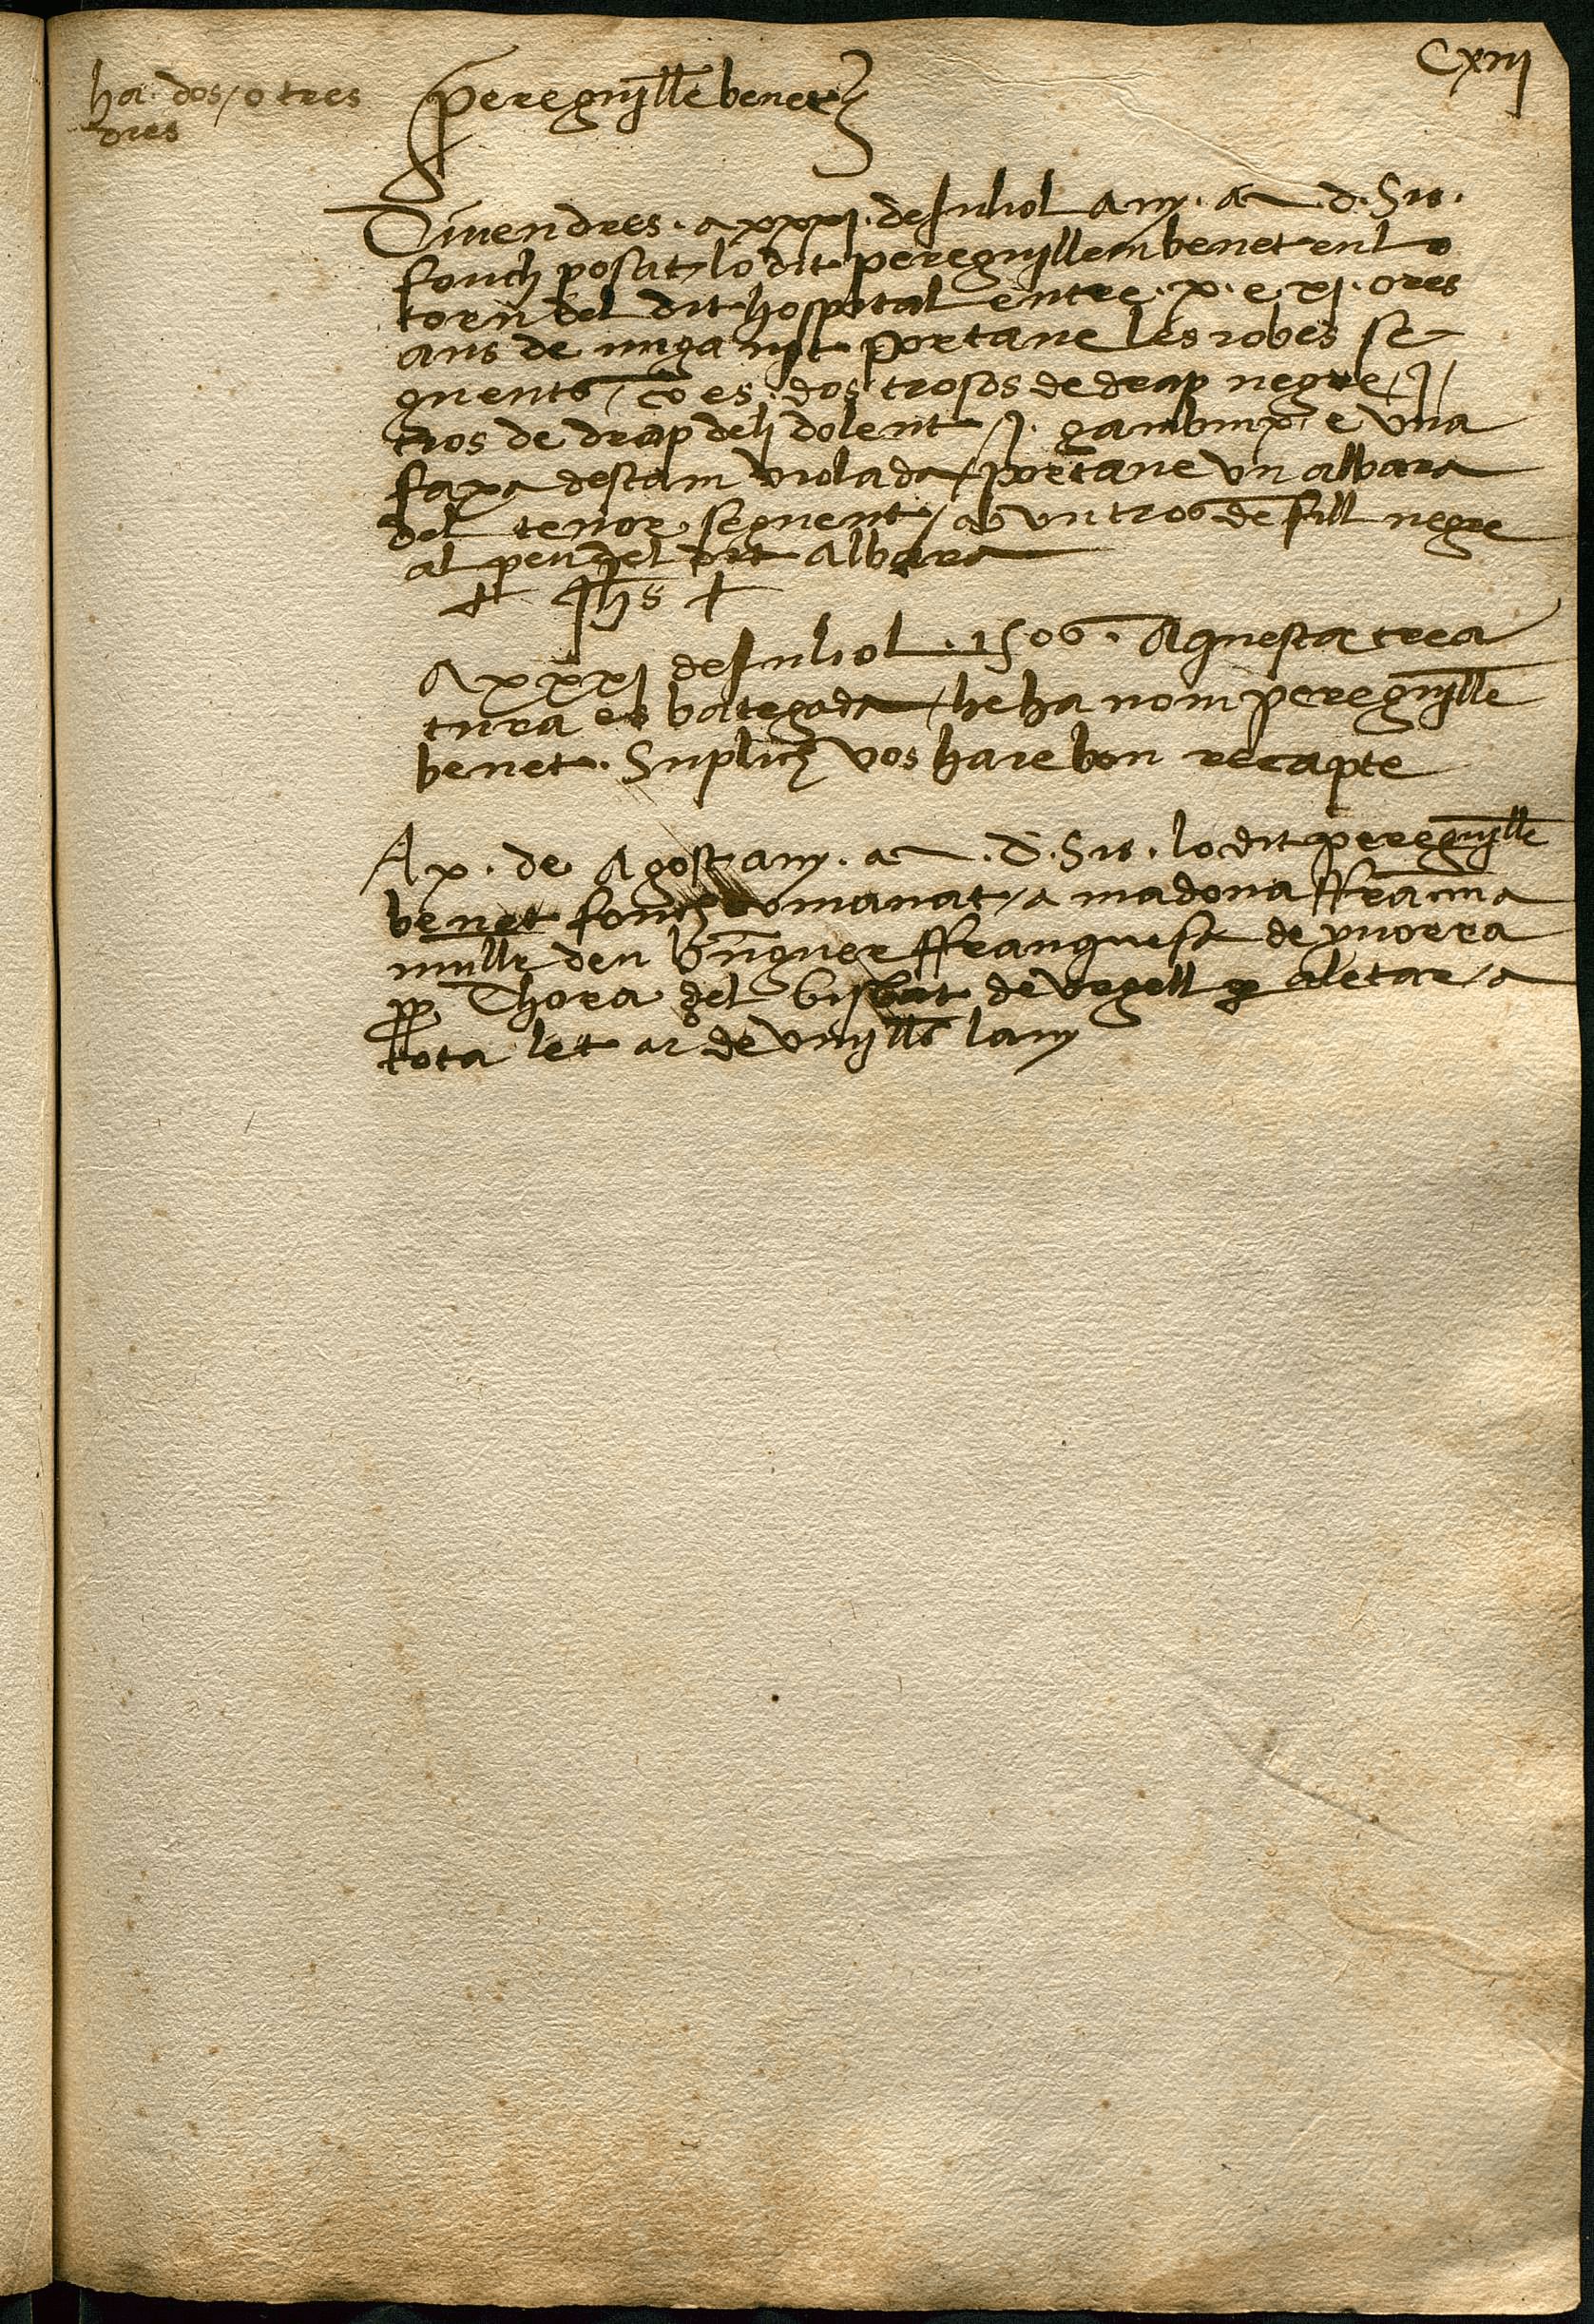 Cxiij
ha dos / o tres
dies
Pereguyllẽ benet
Diuendres . a xxxj . de Juliol any . M . d . Sis .
fonch posat / lo dit pereguyllem benet enlo
torn del dit hospital entre . x . e . xj . ores
ans de miga nit portaue les robes se
guents / ço es . dos trosos de drap negre / j
tros de drap deli dolent / j . gambuix e vna
faxa destam violada / portaue vn albara
del tenor seguent / ab vn tros de fill negre
al peu del dit albara
+ Jhs +
A xxxj de Juliol . 1506 . Aquesta crea
tura es bategada / he ha nom pereguyllẽ
benet . Suplich vos haie bon recapte
A x . de Agost any . M . d . Sis . lo dit pereguyllẽ
benet fonch comanat / a madona ffrãcina
mullr den bñguer ffranquesa de yuorra
pp Thora del bisbat de vrgell per aletar / a
tota let a ro de viiij lls lany